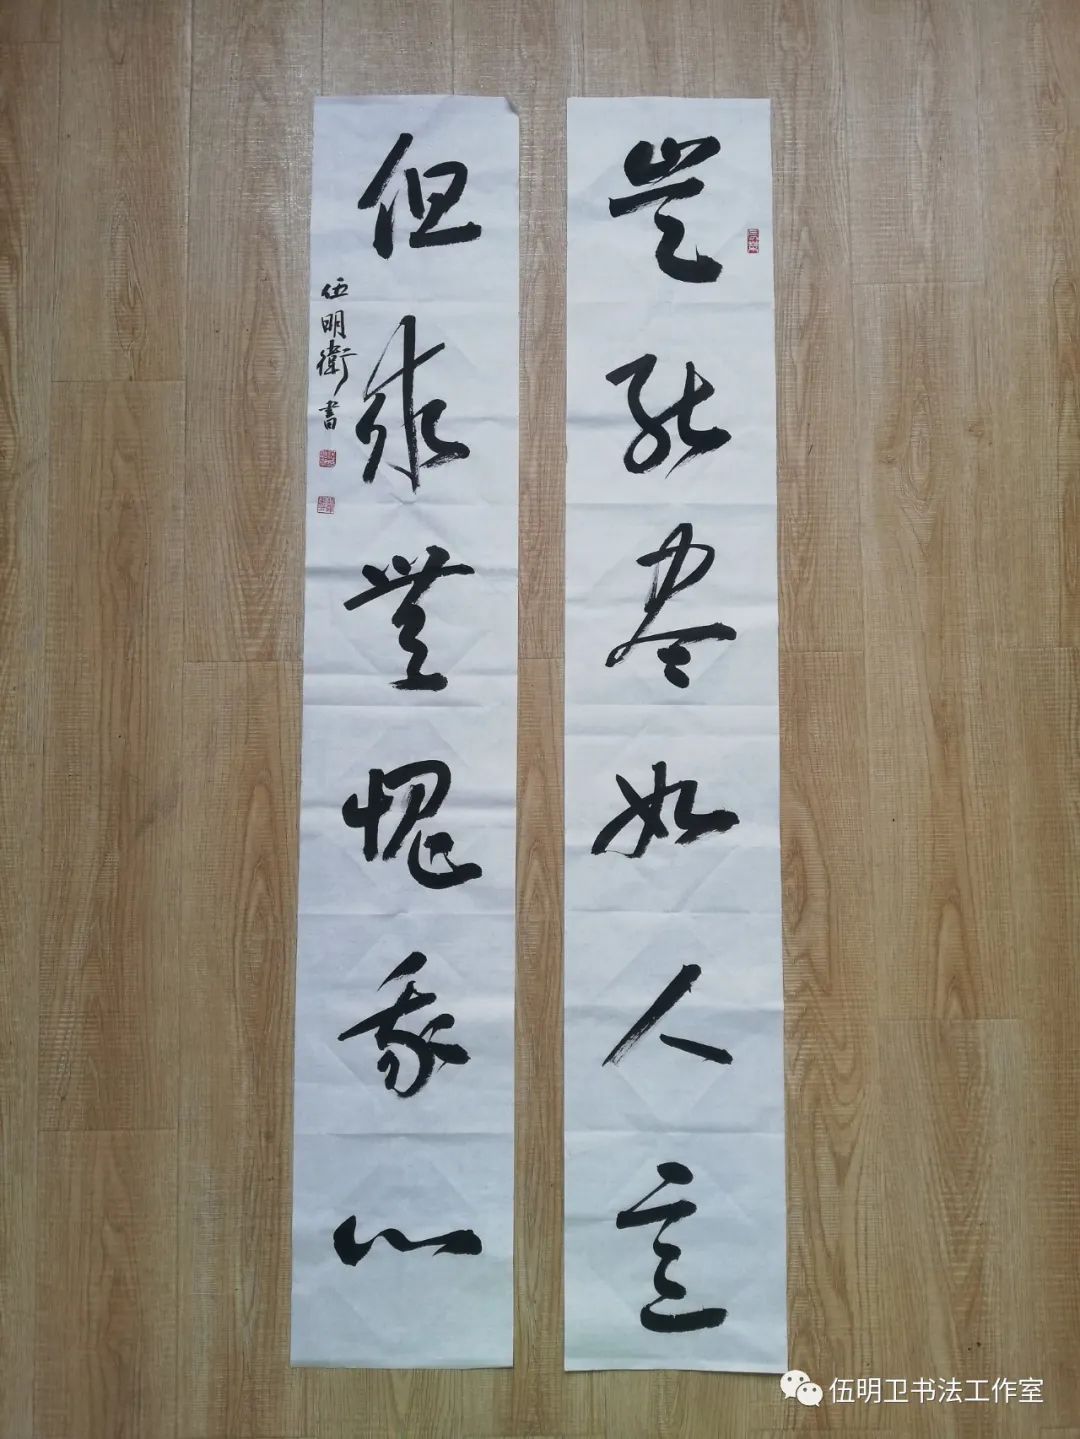 豈能盡如人意
但求無愧我心
伍明衛書
伍明卫书法工作室